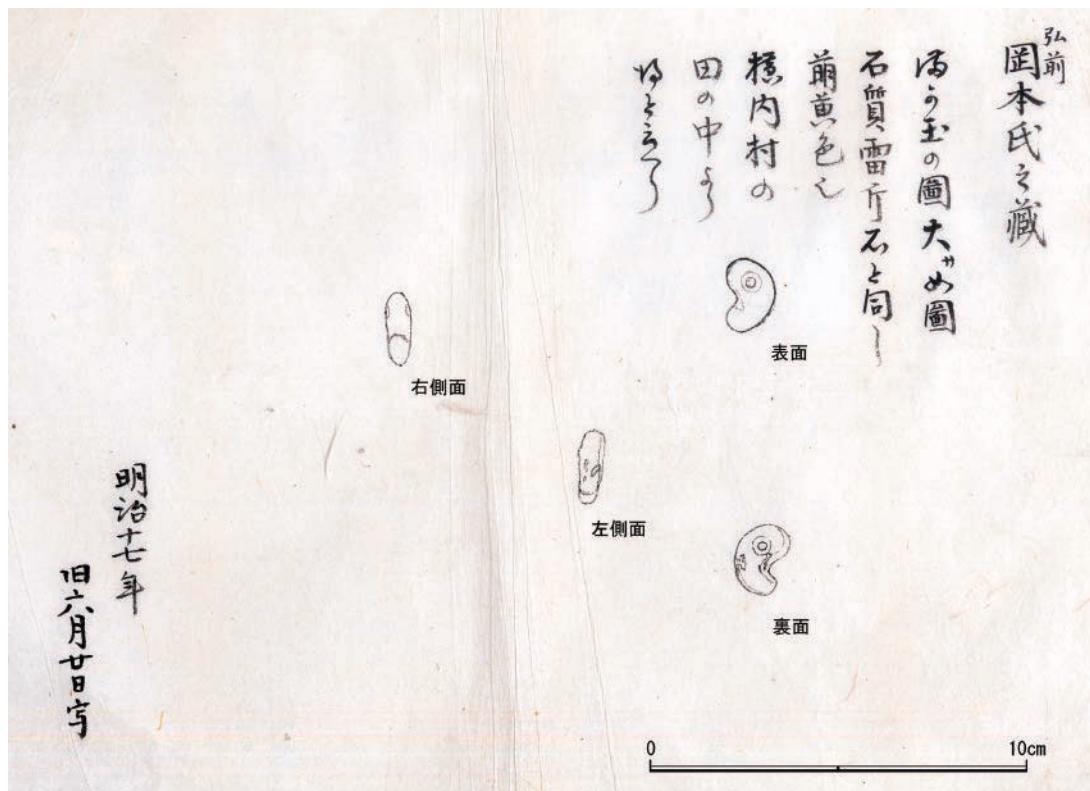 弘前
岡本氏之蔵
まか玉の圖大サ如圖
石質雷斤石と同し
萠黄色也
横内村の
田の中より
得と云へり
表面
右側面
左側面
裏面
明治十七年
旧六月廿日写
0 10cm